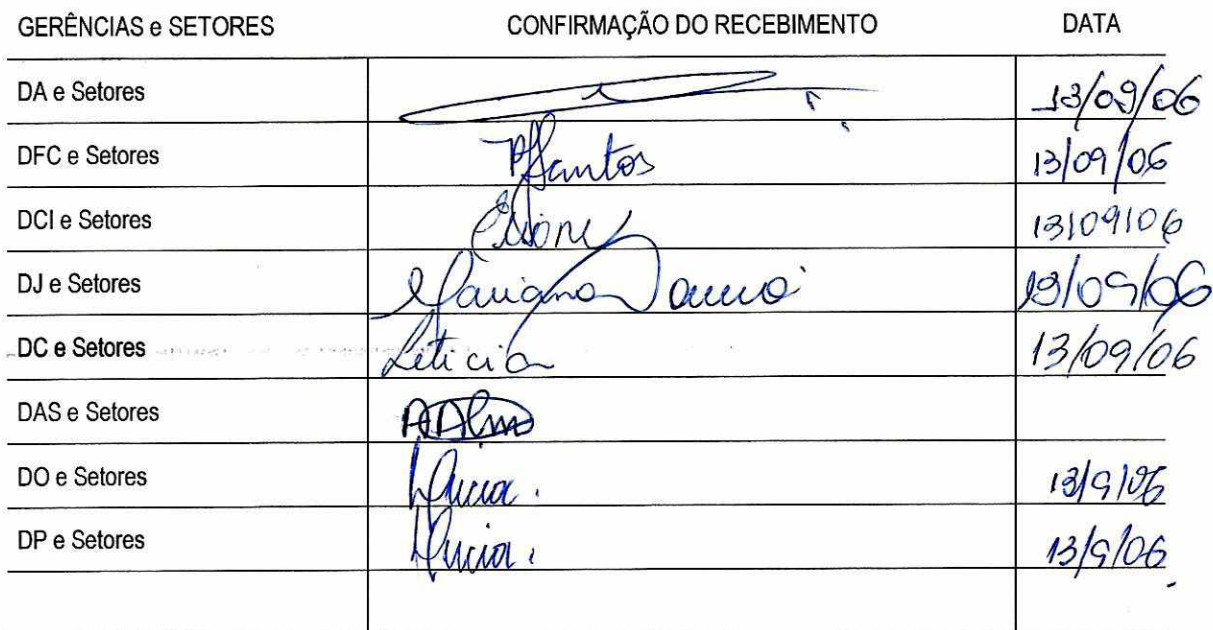 GERÊNCIAS e SETORES CONFIRMAÇÃO DO RECEBIMENTO DATA
DA e Setores 13/09/06
DFC e Setores Santos 13/09/06
DCI e Setores 13/09/06
DJ e Setores Mariana 13/09/06
DC e Setores Leticia 13/09/06
DAS e Setores
DO e Setores Lucia. 13/9/06
DP e Setores Lucia. 13/9/06